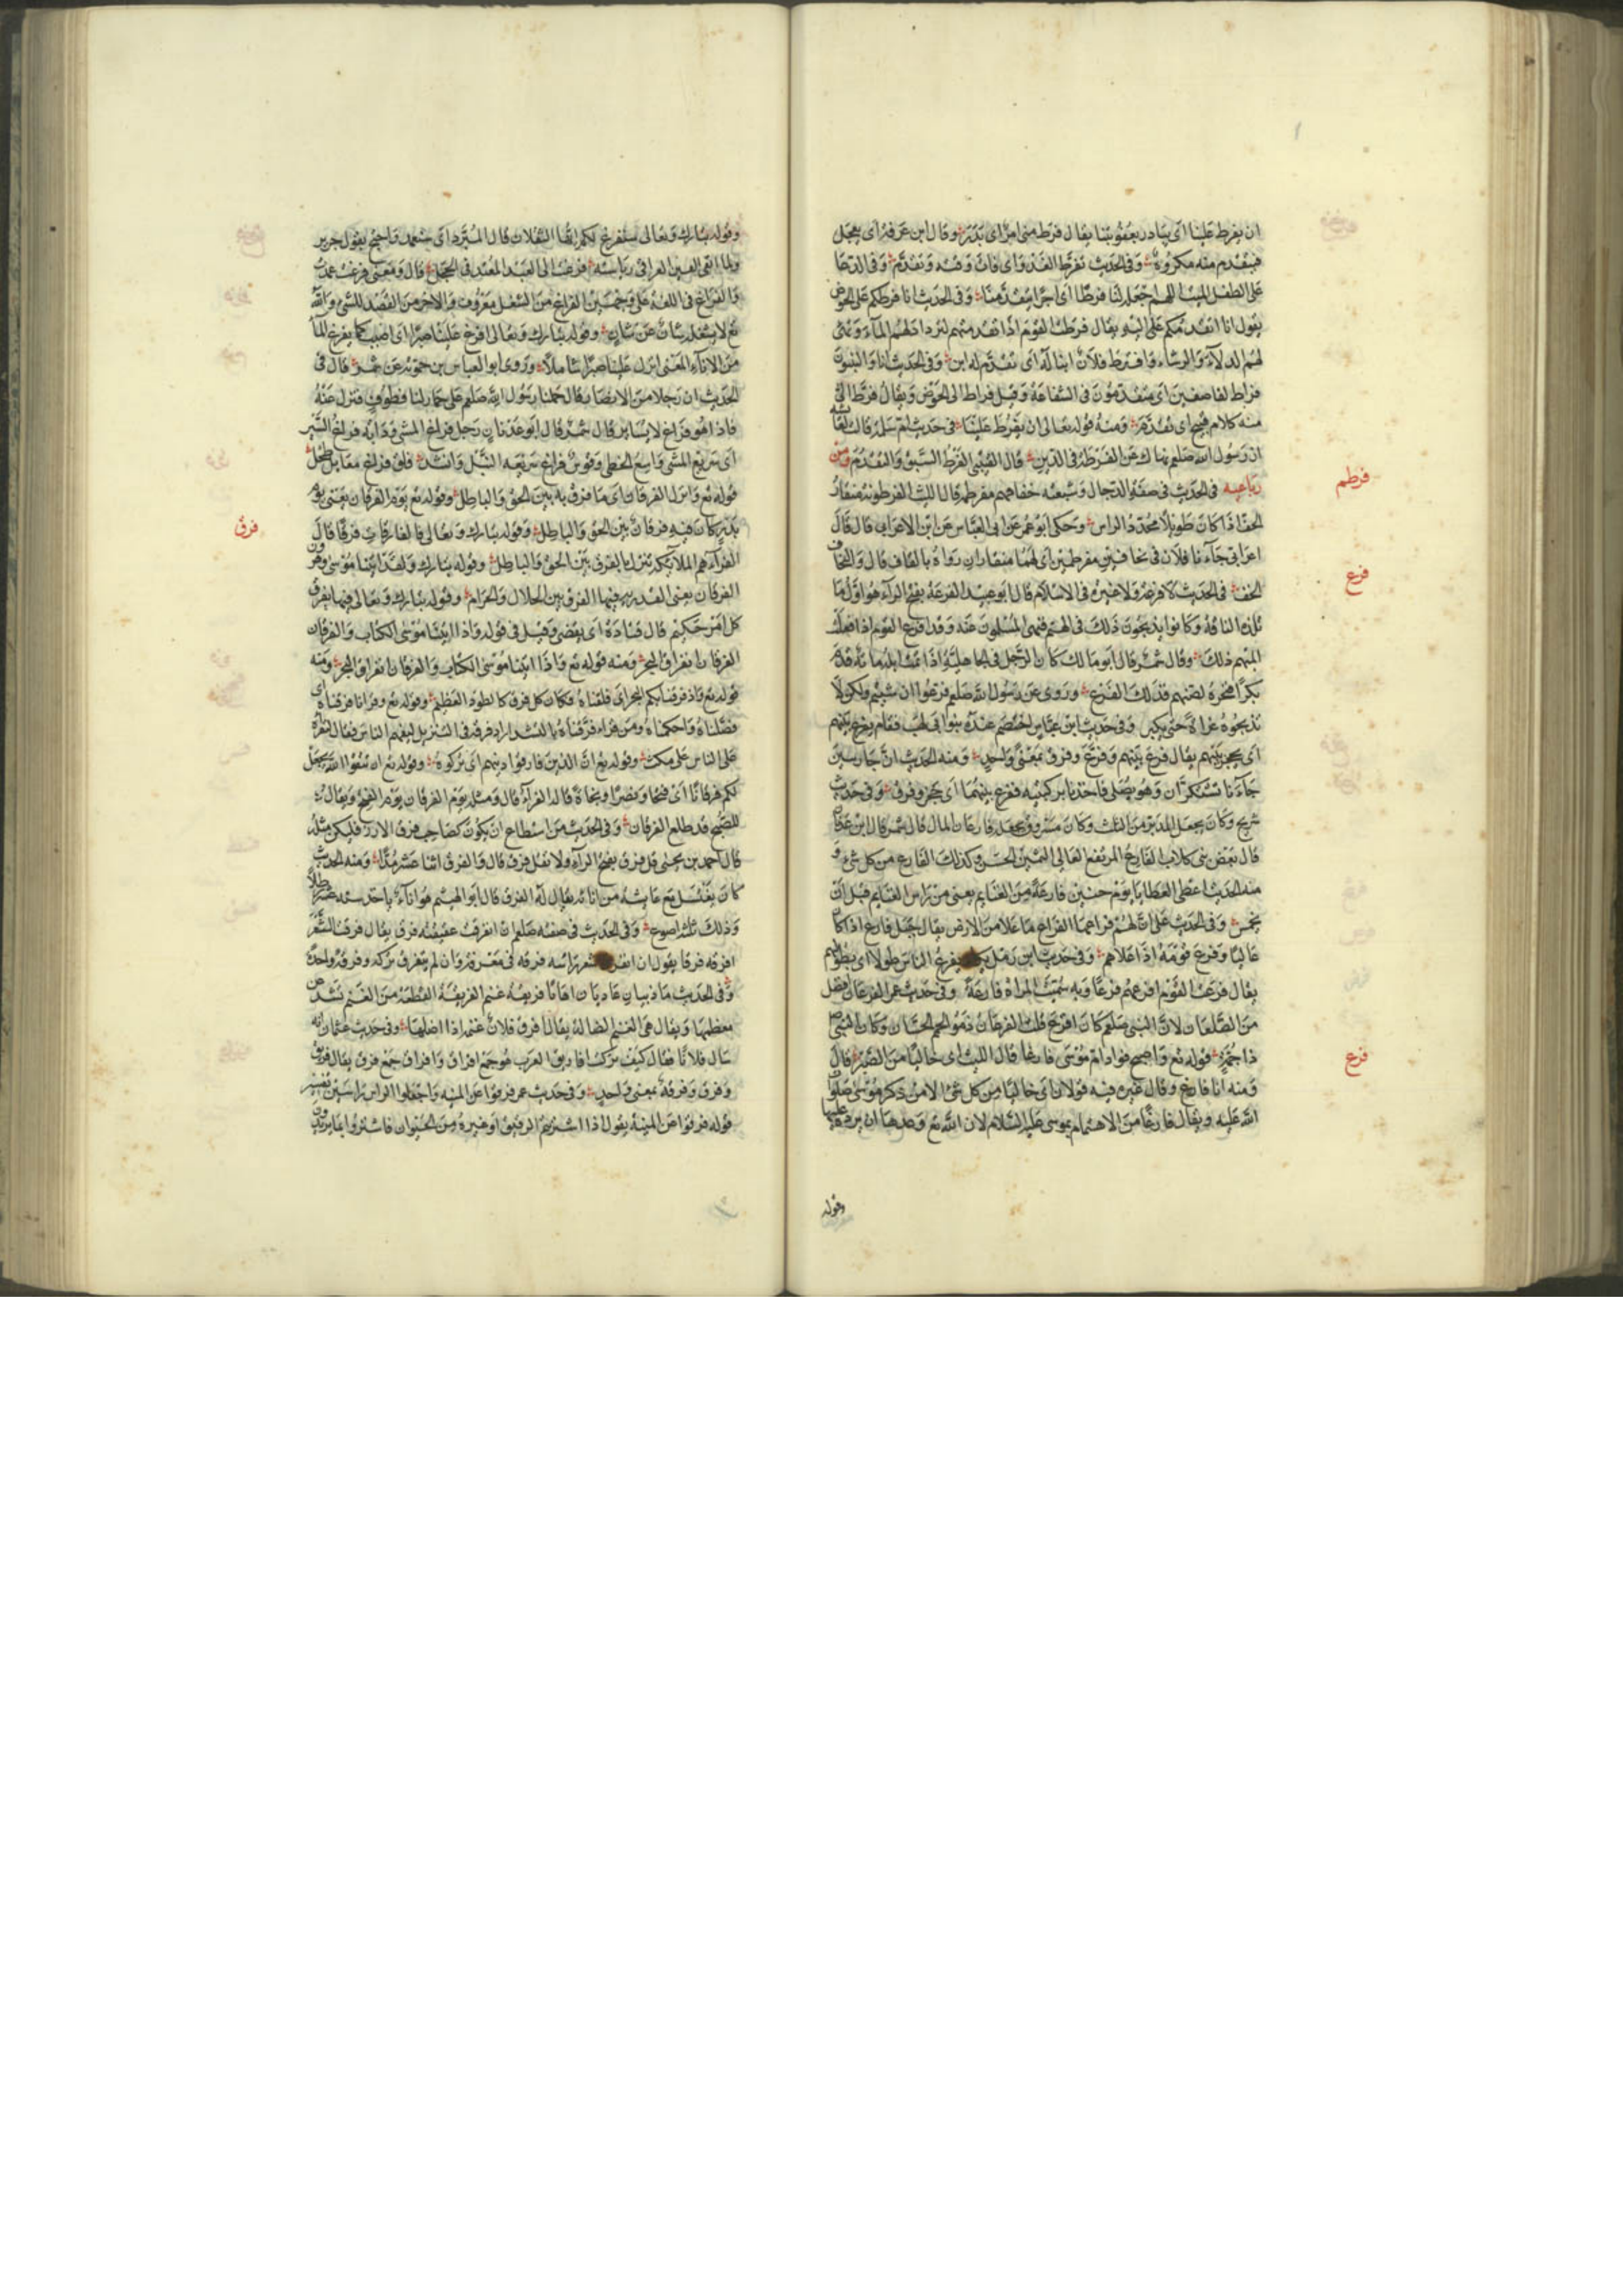 ان يفرط علينا اى يبادر بعقوبتنا يقال فرط منى امر اى بدر وقال ابن عرفة اى يعجل
فيقدم منه مكروه وفى الحديث تفرط الغزو اى فات وقته وتقدم وفى الدعا
على الطفل الميت اللهم اجعله لنا فرطا اى اجرا يتقدمنا وفى الحديث انا فرطكم على الحوض
يقول انا اتقدمكم عليه يقال فرطت القوم اذا تقدمتهم لترداد لهم المآء وتهئ
لهم الدلآء والرشاء وافترط فلان ابنا له اى تقدم له ابن وفى الحديث انا والنبيون
فراط لقاصفين اى متقدمون فى الشفاعة وقيل فراط الى الحوض ويقال فرط الى
منه كلام قبيح اى تقدم ومنه قوله تعالى ان يفرط علينا فى حديث ام سلمة قالت لعائشة
ان رسول الله صلعم نهاك عن الفرطة فى الدين قال القتيبى الفرط السبق والتقدم ومن
رباعيه فى الحديث فى صفة الدجال وشيعته خفافهم مفرطمة قال الليث الفرطومة منقار
فرطم
الخف اذا كان طويلا محدد الراس وحكى ابو عمر عن ابى العباس عن ابن الاعرابى قال قال
اعرابى جآءنا فلان فى نخافين مفرطمين اى لهما منقاران رواه بالقاف قال والنخاف
الخف فى الحديث لا فرعة ولا عتيرة فى الاسلام قال ابو عبيد الفرعة بفتح الرآء هو اول ما
فرع
تلده الناقة وكانوا يذبحون ذلك لالهتهم فنهى المسلمون عنه وقد افرع القوم اذا فعلت
ابلهم ذلك وقال شمر قال ابو مالك كان الرجل فى الجاهلية اذا تمت ابله مائة قدم
بكرا فنحره لصنمهم فذلك الفرع وروى عن رسول الله صلعم فرعوا ان شيتم ولكن لا
تذبحوه غراة حتى يكبر وفى حديث ابن عباس اختصم عنده بنو ابى لهب فقام يفرع بينهم
اى يحجز بينهم يقال فرع بينهم وفرع وفرق بمعنى واحد ومنه الحديث ان جاريتين
جآءتا تشتدان وهو يصلى فاخذتا بركبتيه ففرع بينهما اى حجز وفرق وفى حديث
شريح وكان يجعل المدبر من الثلث وكان مسروق يجعله فارعا من المال قال شمر قال ابن عدنان
قال بعض بنى كلاب الفارع المرتفع العالى الهيئ الحسن وكذلك الفارع من كل شئ و
منه الحديث اعطى العطايا يوم حنين فارعة من الغنايم يعنى من راس الغنايم قبل ان
يخمس وفى الحديث على ان لهم فراعها الفراع ما علا من الارض يقال جبل فارع اذا كان
عاليا وفرع قومه اذا علاهم وفى حديث ابن زمل يكاد يفرع الناس طولا اى يطولهم
يقال فرعت القوم افرعهم فرعا وبه سميت المراة فارعة وفى حديث عمر الفرعان افضل
من الصلعان لان النبى صلعم كان افرع قلت الفرعان ذوو الجمم الحسان وكان النبى
ذا جمة قوله تع واصبح فواد ام موسى فارغا قال الليث اى خاليا من الصبر قال
فرغ
ومنه انا فارغ وقال غيره فيه قولان اى خاليا من كل شئ الا من ذكر موسى صلوات
الله عليه ويقال فارغا من الاهتمام بموسى عليه السلام لان الله تع وعدها ان يرده عليها
وقوله
وقوله تبارك وتعالى سنفرغ لكم ايها الثقلان قال المبرد اى سنعمد واحتج بقول جرير
ولما اتقى القين العراقى باسته فرغت الى العبد المقيد فى الحجل قال ومعنى فرغت عمدت
والفراغ فى اللغة على وجهين الفراغ من الشغل معروف والاخر من القصد للشئ والله
تع لا يشغله شان عن شان وقوله تبارك وتعالى افرغ علينا صبرا اى اصبب كما يفرغ المآء
من الانآء المعنى انزل علينا صبرا شاملا وروى ابو العباس بن حمويه عن شمر قال فى
الحديث ان رجلا من الانصار قال حملنا رسول الله صلعم على حمار لنا قطوف فنزل عنه
فاذا هو فراغ لا يساير قال شمر قال ابو عدنان رجل فراغ المشى ودابة فراغ السير
اى سريع المشى واسع الخطى وقوس فراغ سريعة النبل وانشد فلق فراغ معابل طحل
قوله تع وانزل الفرقان اى ما فرق به بين الحق والباطل وقوله تع يوم الفرقان يعنى يوم
بدر كان فيه فرقان بين الحق والباطل وقوله تبارك وتعالى فالفارقات فرقا قال
فرق
الفرآء هم الملايكة تنزل بالفرق بين الحق والباطل وقوله تبارك ولقد اتينا موسى وهرون
الفرقان يعنى التورية فيها الفرق بين الحلال والحرام وقوله تبارك وتعالى فيها يفرق
كل امر حكيم قال قتادة اى يقضى وقيل فى قوله واذ اتينا موسى الكتاب والفرقان
الفرقان انفراق البحر ومنه قوله تع واذ اتينا موسى الكتاب والفرقان انفراق البحر ومنه
قوله تع واذ فرقنا بكم البحر اى فلقناه فكان كل فرق كالطود العظيم وقوله تع وقرانا فرقناه اى
فصلناه واحكمناه ومن قراء فرقناه بالتشديد اراد فرقه فى التنزيل ليفهم الناس فقال لتقراه
على الناس على مكث وقوله تع ان الذين فارقوا دينهم اى تركوه وقوله تع ان تتقوا الله يجعل
لكم فرقانا اى فتحا ونصرا ونجاة قاله الفرآء قال ومثله يوم الفرقان يوم الفتح ويقال
للصبح قد طلع الفرقان وفى الحديث من استطاع ان يكون كصاحب فرق الارز فليكن مثله
قال احمد بن يحيى قل فرق بفتح الرآء ولا تقل فرق قال والفرق اثنا عشر مدا ومنه الحديث
كان يغتسل مع عايشة من انآء يقال له الفرق قال ابو الهيثم هو انآء ياخذ ستة عشر رطلا
وذلك ثلثة اصوع وفى الحديث فى صفته صلعم ان انفرقت عقيقته فرق يقال فرقت الشعر
افرقه فرقا يقول ان انفرق شعر راسه فرقه فى مفرقه وان لم يتفرق تركه وفرقة واحدة
وفى الحديث ما ذيبان عاديان اصابا فريقة غنم الفريقة القطعة من الغنم تشذ عن
معظمها ويقال هى الغنم الضالة يقال افرق فلان غنمه اذا اضلها وفى حديث عثمان انه
سال فلانا فقال كيف تركت افاريق العرب هو جمع افراق وافراق جمع فرق يقال فريق
وفرق وفرقة بمعنى واحد وفى حديث عمر فرقوا عن المنية واجعلوا الراس راسين تفسير
قوله فرقوا عن المنية يقول اذا اشتريتم الرقيق او غيره من الحيوان فاشتروا بما تريدون